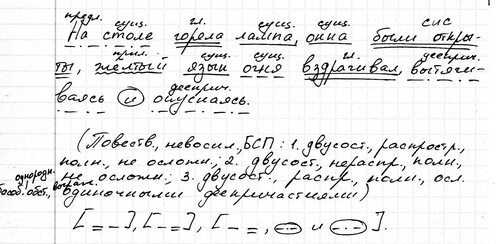 предл. сущ. гл. сущ. сущ. сис
На столе горела лампа, окна были откры-
прил. сущ. сущ. гл. дееприч.
ты, желтый язык огня вздрагивал, вытяги-
дееприч.
ваясь и опускаясь.
(Повеств, невоскл, БСП: 1. двусост, распростр.,
полн., не осложн.; 2. двусост., нераспр., полн.,
однородн.
не осложн.; 3. двусост., распр., полн., осл.
обособ. обст.,
одиночными деепричастиями)
[= –], [– =], [– =, и ].